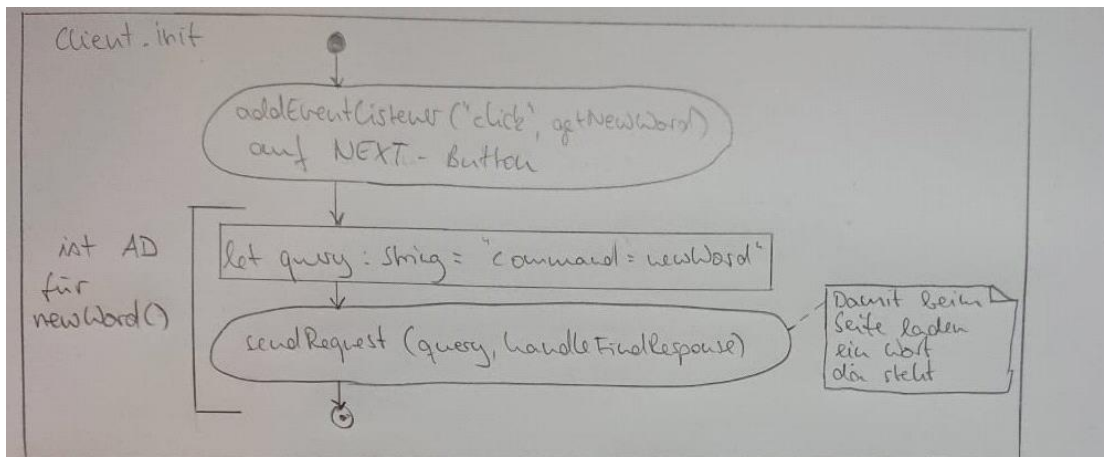 Client.init
addEventListener("click", getNewWord)
auf NEXT - Button
ist AD
für
newWord()
let query : string = "command = newWord"
sendRequest (query, handleFindResponse)
Damit beim
Seite laden
ein Wort
da steht